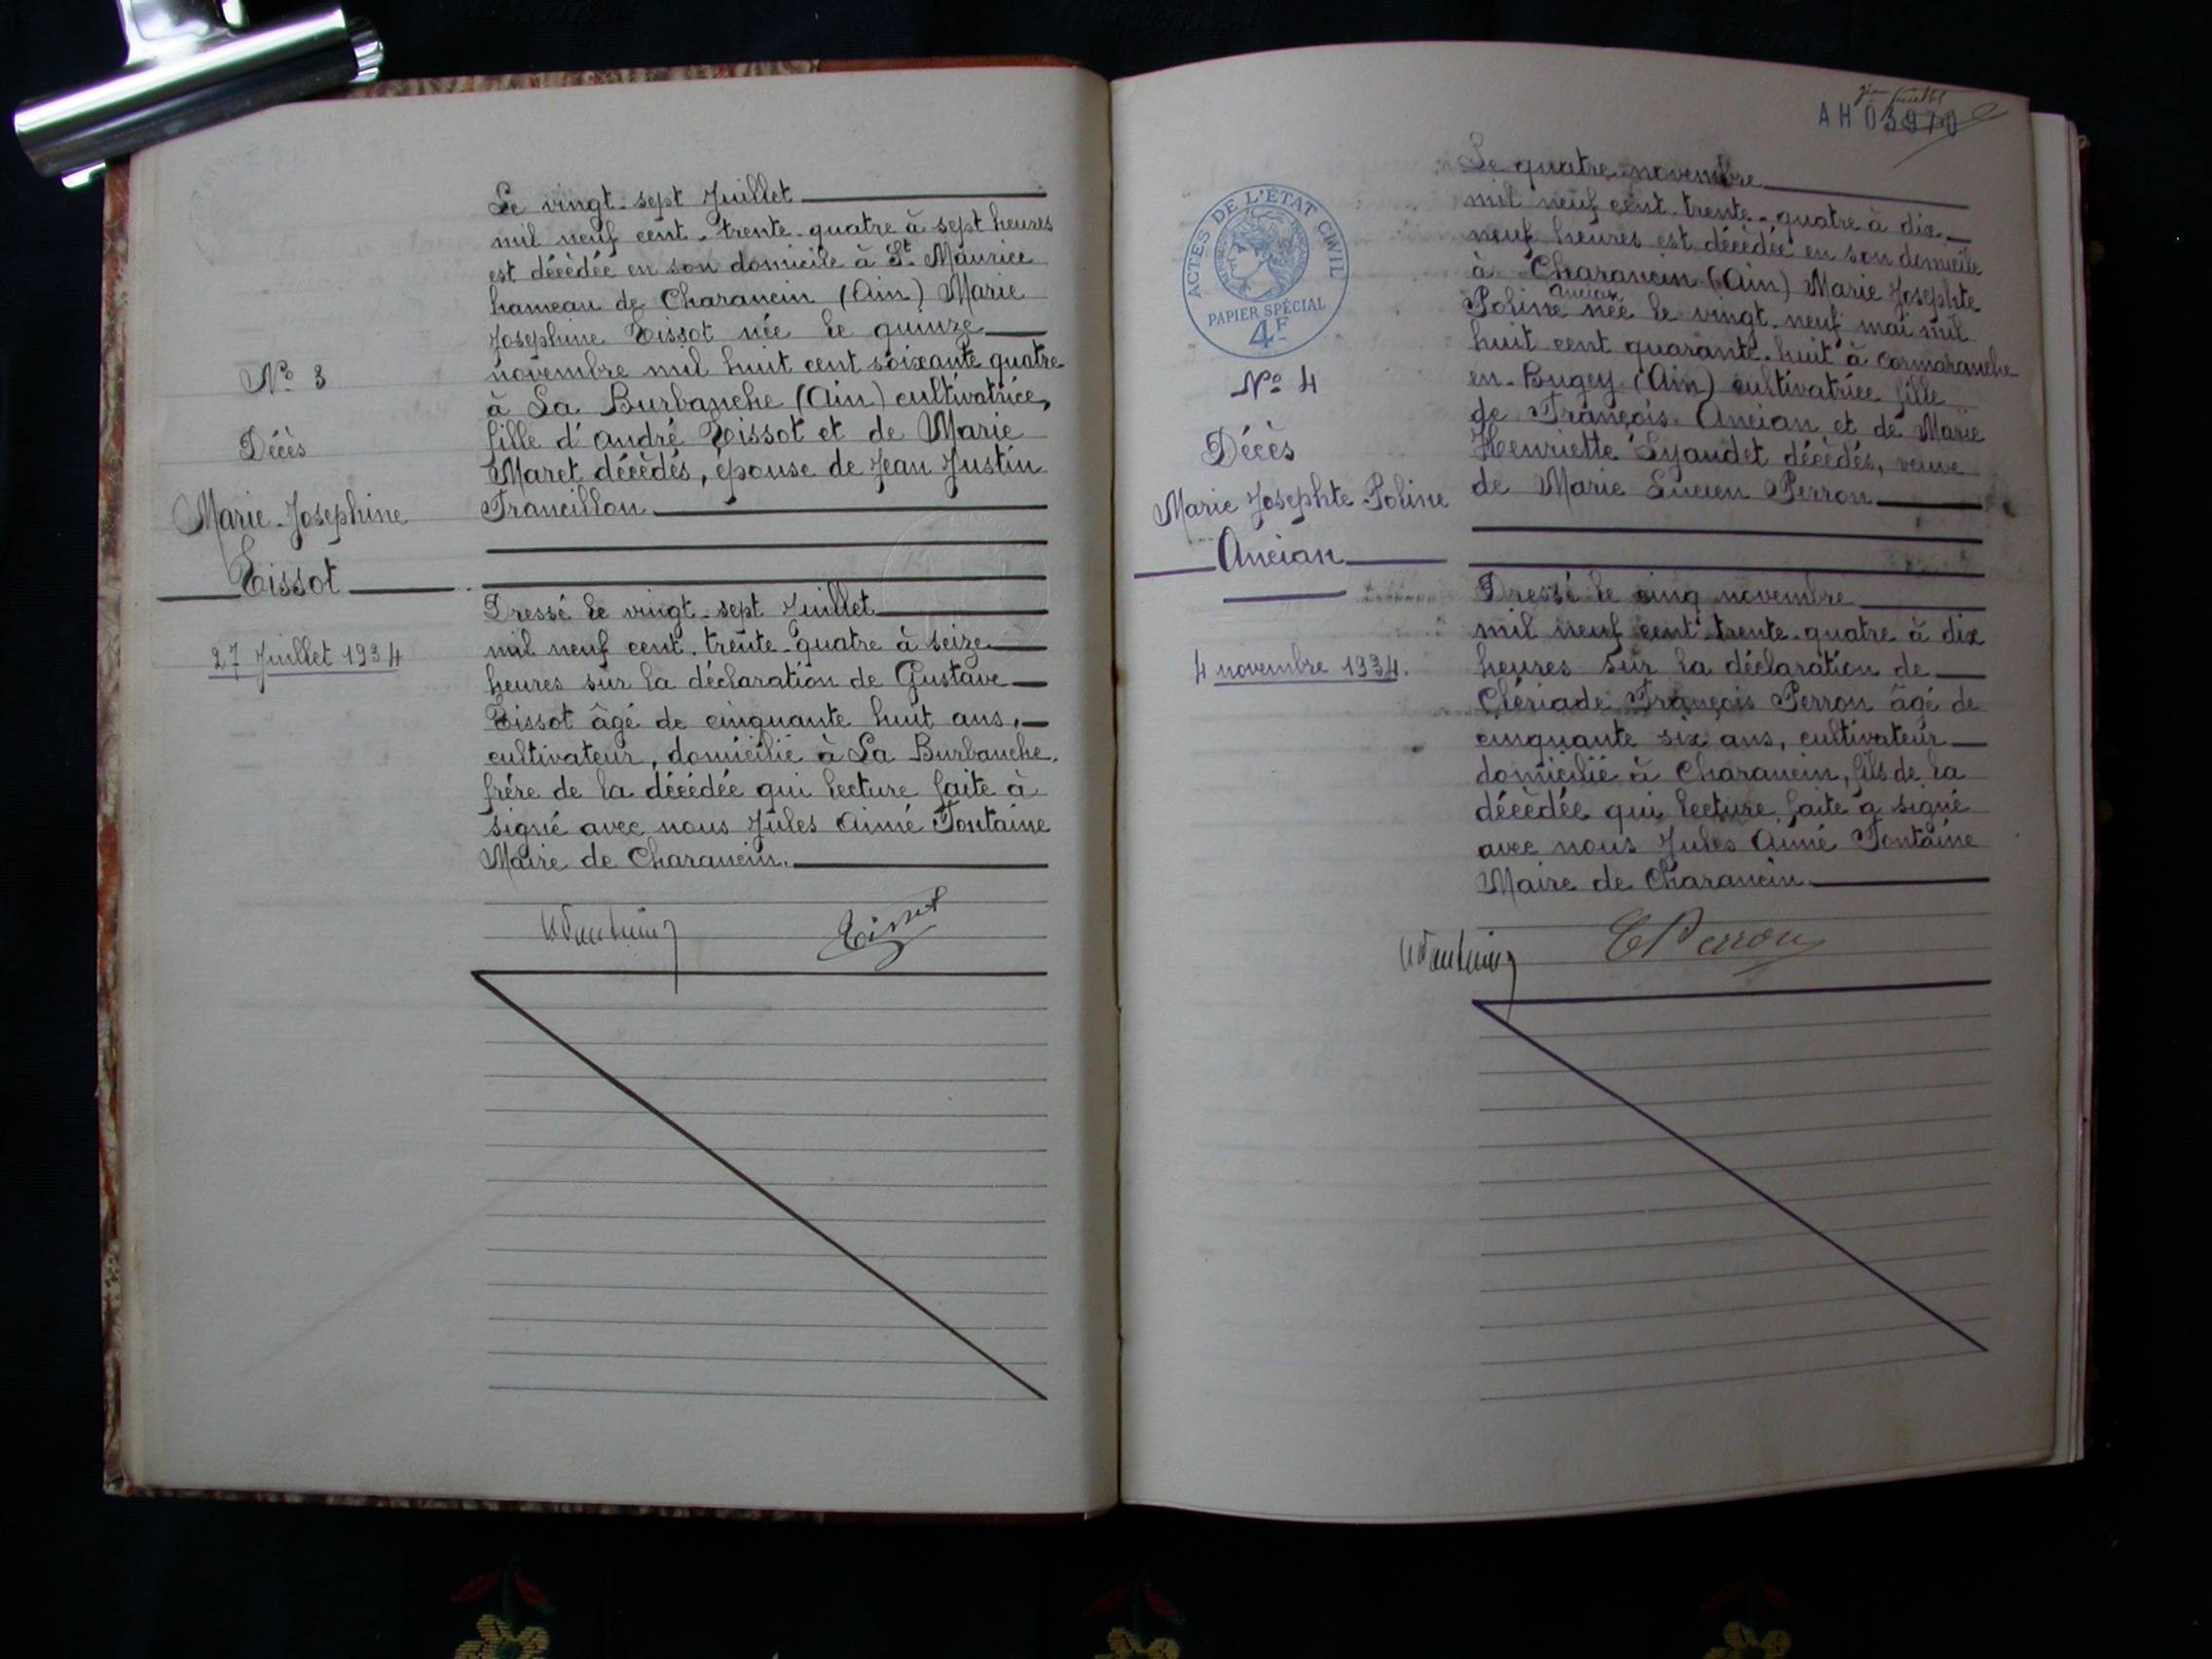 Le vingt-sept Juillet
mil neuf cent-trente-quatre à sept heures
est décédée en son domicile à St Maurice
hameau de Charancin (Ain) Marie
Josephine Tissot née le quinze
novembre mil huit cent soixante quatre
à La Burbanche (Ain) cultivatrice,
fille d'André Tissot et de Marie
Maret décédés, épouse de Jean Justin
Francillon
Nº 3
Décès
Marie-Josephine
Tissot
27 Juillet 1934
Dressé le vingt-sept Juillet
mil neuf cent-trente-quatre à seize
heures sur la déclaration de Gustave
Tissot âgé de cinquante huit ans,
cultivateur, domicilié à La Burbanche,
frére de la décédée qui lecture faite à
signé avec nous Jules Aimé Fontaine
Maire de Charancin.
Tissot
AH 03970
ACTES DE L'ÉTAT CIVIL
PAPIER SPÉCIAL
4F
Nº 4
Décès
Marie Josephte Poline
Ancian
4 novembre 1934.
Le quatre novembre
mil neuf cent-trente-quatre à dix
neuf heures est décédée en son domicile
à Charancin (Ain) Marie Josephte
Ancian
Poline née le vingt-neuf mai mil
huit cent quarante-huit à Cormaranche
en-Bugey (Ain) cultivatrice fille
de François Ancian et de Marie
Henriette Lyaudet décédés, veuve
de Marie Lucien Perron
Dressé le cinq novembre
mil neuf cent trente-quatre à dix
heures sur la déclaration de
Clériade François Perron âgé de
cinquante six ans, cultivateur
domicilié à Charancin, fils de la
décédée qui lecture faite a signé
avec nous Jules Aimé Fontaine
Maire de Charancin
C Perron